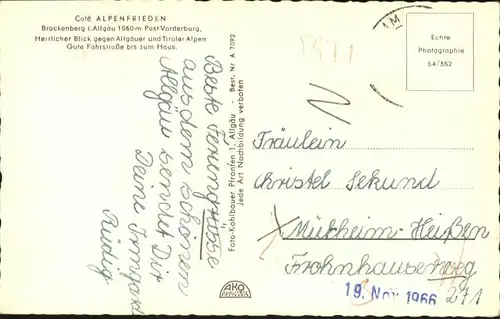 Café ALPENFRIEDEN
Brackenberg i. Allgäu 1060 m Post Vorderburg,
Herrlicher Blick gegen Allgäuer und Tiroler Alpen
Gute Fahrstraße bis zum Haus.
Beste Feriengrüsse
aus dem schönen
Allgäu sendet Dir
Deine Irmgard
Foto-Kohlbauer Pfronten 1, Allgäu - Best. Nr. A 7092
Jede Art Nachbildung verboten
AKO
Echte
Photographie
54/362
Fräulein
Christel Sekund
Mülheim-Heißen
Frohnhauserweg
271
19. Nov. 1966